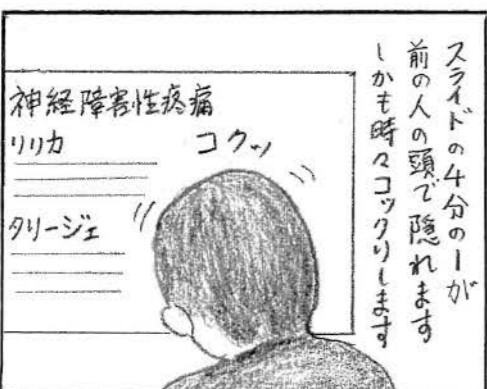 スライドの4分の1が
前の人の頭で隠れます
しかも時々コックリします
神経障害性疼痛
リリカ
コクッ
タリージェ